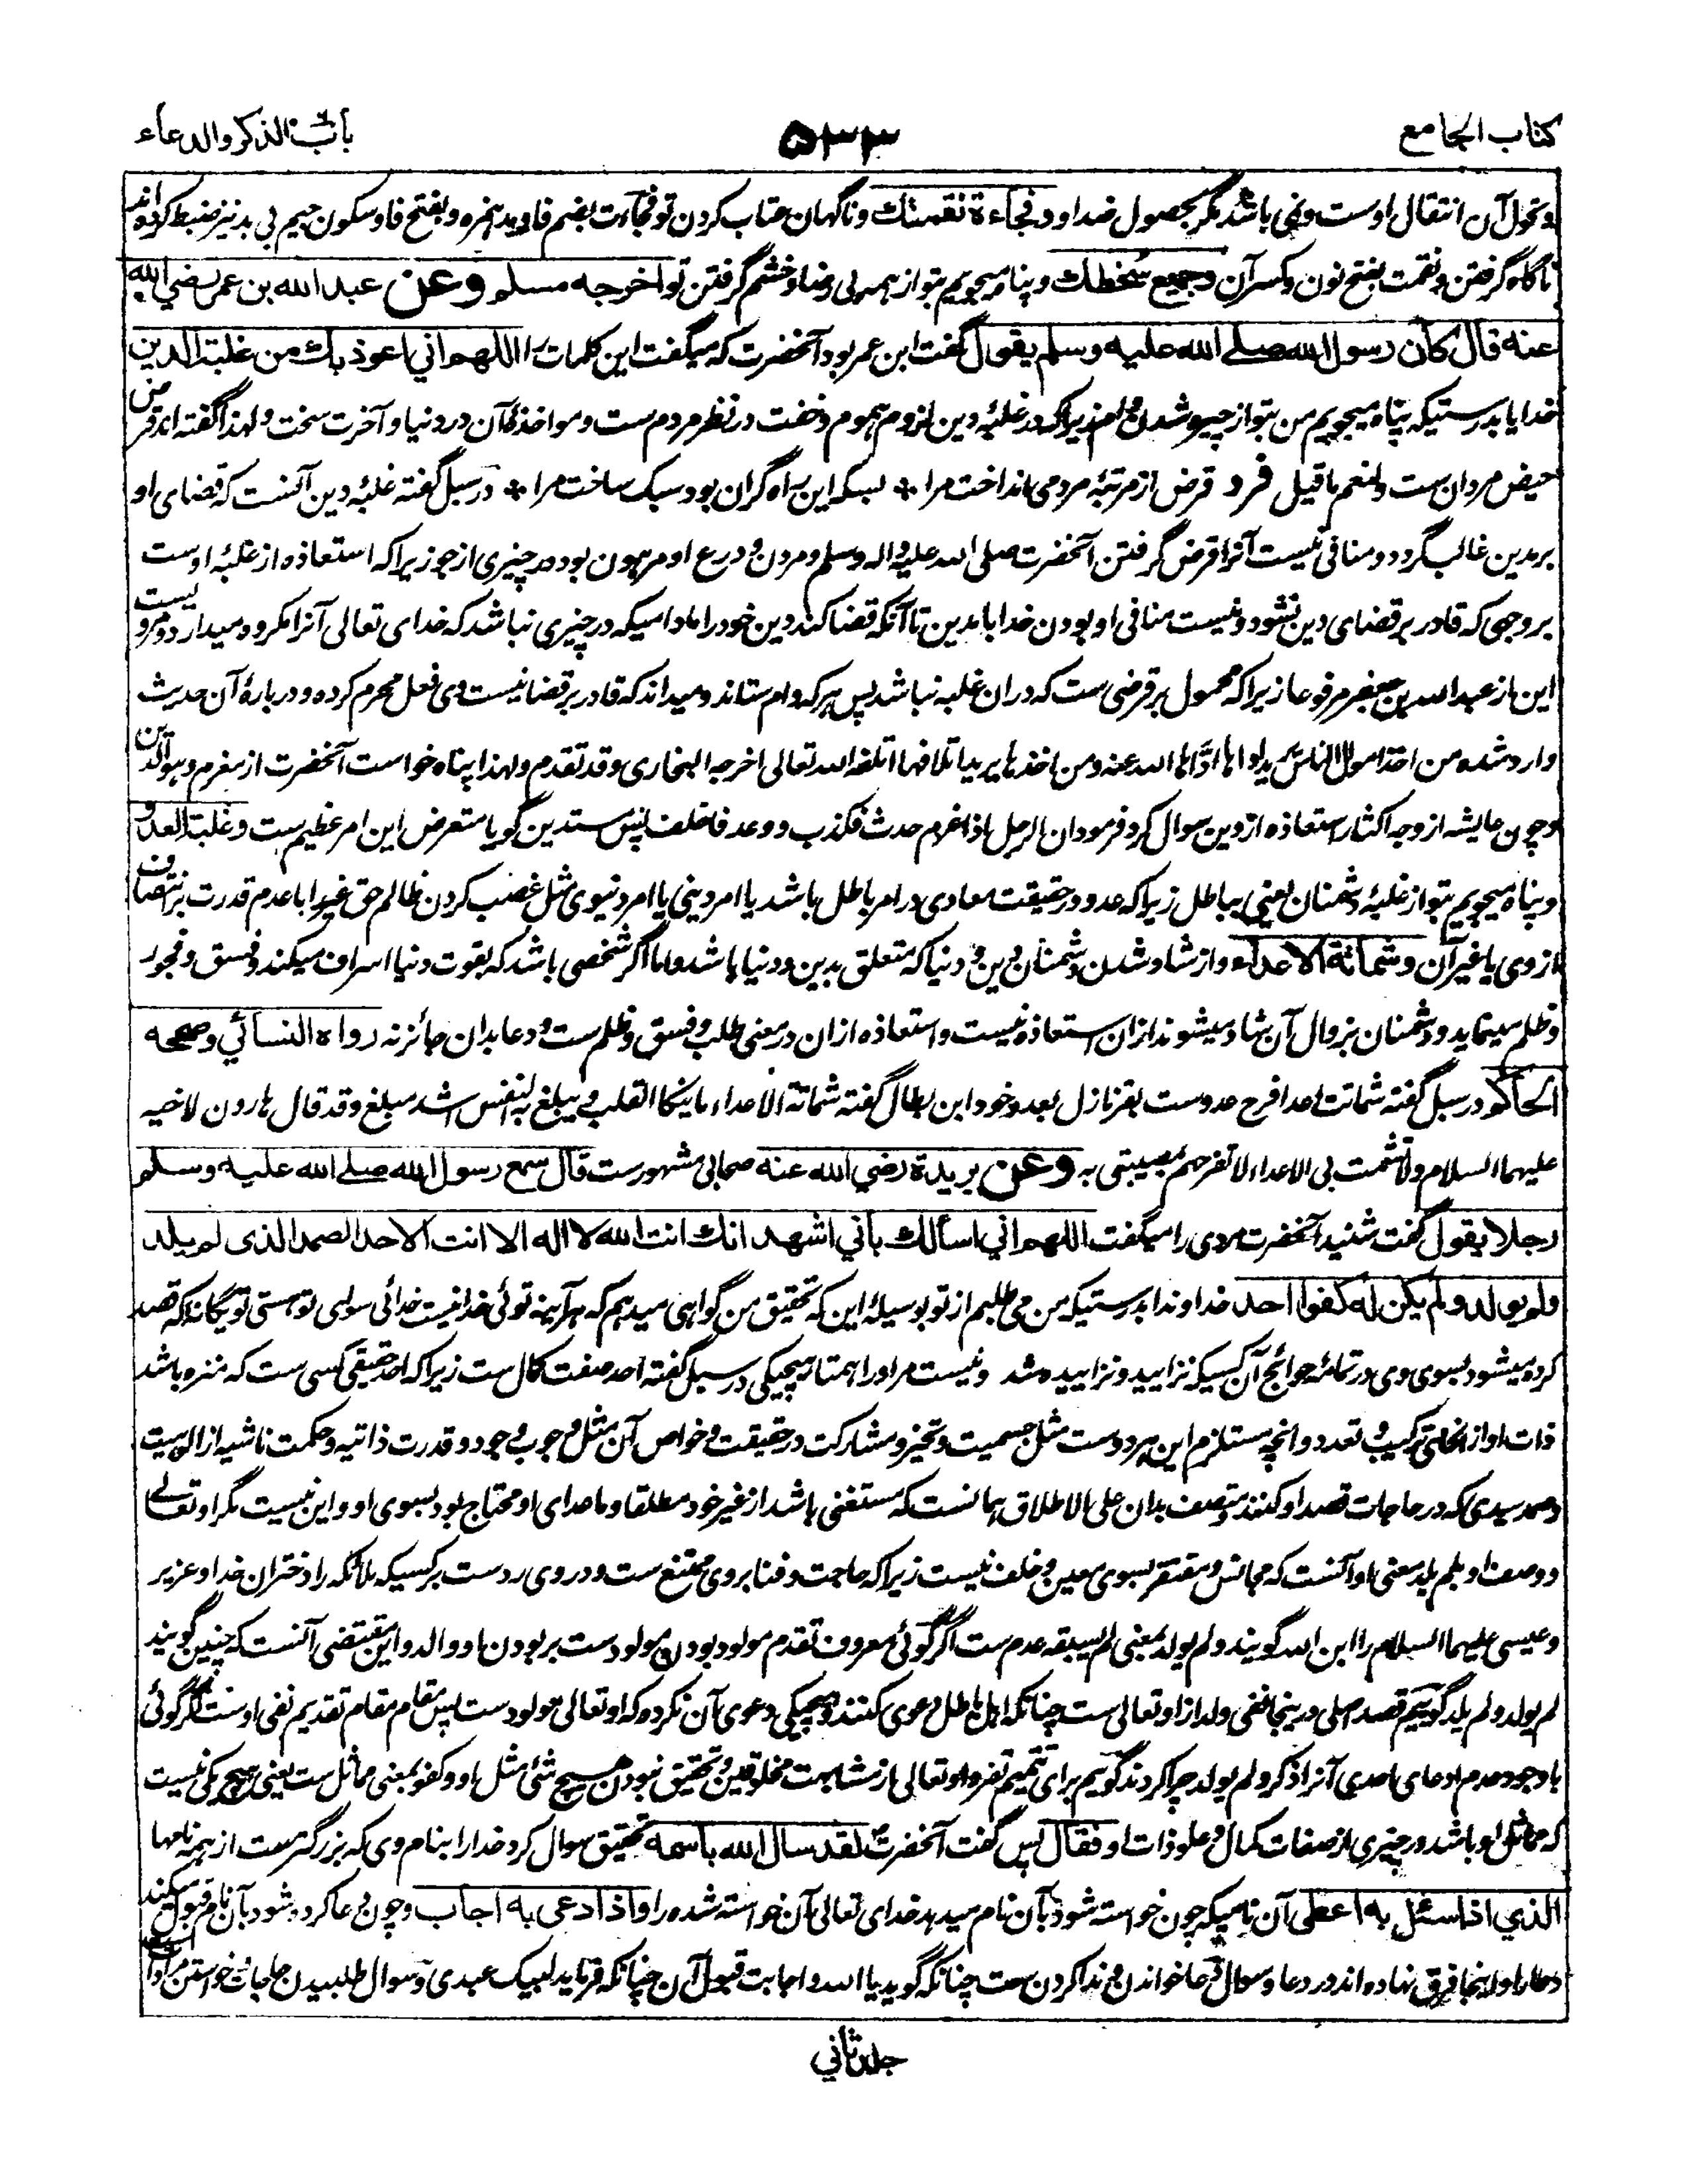 کتاب الجامع
۵۳۳
باب الذکر والدعاء
وتحول آن انتقال اوست ونمی باشد مگر بحصول ضد او وفجاءة نقمتك وناگهان عتاب کردن تو فجاءت بضم فا ومد همزه وبفتح فا وسکون جیم بی مد نیز ضبط کرده اند
ناگاه گرفتن ونقمت بفتح نون وکسر آن وجمیع سخطك وپناه میجویم بتو از همه بی رضا وخشم گرفتن تو اخرجه مسلم وعن عبد الله بن عمر رضي الله
عنه قال کان رسول الله صلے الله علیه وسلم یقول گفت ابن عمر بود آنحضرت که میگفت این کلمات را اللهم اني اعوذ بك من غلبة الدین
خدایا بدرستیکه پناه میجویم من بتو از چیره شدن وام زیراکه در غلبۀ دین لزوم هموم وخفت در نظر مردم ست ومواخذۀ آن در دنیا وآخرت سخت ولهذا گفته اند قرض
حیض مردان ست ولنعم ما قیل فرد قرض از مرتبۀ مردمی انداخت مرا * بسکه این راه گران بود سبک ساخت مرا * در سبل گفته غلبۀ دین آنست که قضای او
بر مدین غالب گردد ومنافی نیست آنرا قرض گرفتن آنحضرت صلی الله علیه واله وسلم ومردن ودرع او مرهون بود در چیزی از جو زیراکه استعاذه از غلبۀ اوست
بر وجهی که قادر بر قضای دین نشود ونیست منافی او بودن خدا با مدین تا آنکه قضا کند دین خود را مادامیکه در چیزی نباشد که خدای تعالی آنرا مکروه میدارد ومرویست
این از عبد الله بن جعفر مرفوعا زیراکه محمول بر قرضی ست که دران غلبه نباشد پس هر که وام ستاند ومیداند که قادر بر قضا نیست وی فعل محرم کرده ودربارۀ آن حدیث
وارد شده من اخذ اموال الناس یرید اداءها اداها الله عنه ومن اخذها یرید اتلافها اتلفه الله تعالی اخرجه البخاری وقد تقدم ولهذا پناه خواست آنحضرت از مغرم وهو الدین
وچون عایشه از وجه اکثار استعاذه از دین سوال کرد فرمود ان الرجل اذا غرم حدث فکذب ووعد فاخلف پس ستدین گویا متعرض این امر عظیم ست وغلبة العدو
وپناه میجویم بتو از غلبۀ دشمنان یعنی بباطل زیراکه عدو در حقیقت معادی در امر باطل باشد یا امر دینی یا امر دنیوی مثل غصب کردن ظالم حق غیر را با عدم قدرت بر انتصاف
از وی یا غیر آن وشماتة الاعداء واز شاد شدن دشمنان دین ودنیا که متعلق بدین ودنیا باشد واما اگر شخصی باشد که بقوت دنیا اسراف میکند وفسق وفجور
وظلم مینماید ودشمنان بزوال آن شاد میشوند ازان استعاذه نیست واستعاذه ازان در معنی طلب فسق وظلم ست ودعا بدان جائز نه رواه النسائي وصححه
الحاکم در سبل گفته شماتت اعدا فرح عدوست بضر نازل بعدو خود ابن بطال گفته شماتة الاعداء ما ینکأ القلب ویبلغ به النفس اشد مبلغ وقد قال هارون لاخیه
علیهما السلام ولا تشمت بی الاعداء لا تفرحهم بمصیبتی به وعن بریدة رضي الله عنه صحابی مشهورست قال سمع رسول الله صلے الله علیه وسلم
رجلا یقول گفت شنید آنحضرت مردی را میگفت اللهم اني اسألك بأني اشهد انك انت الله لا اله الا انت الاحد الصمد الذی لم یلد
ولم یولد ولم یکن له کفوا احد خداوندا بدرستیکه من می طلبم از تو بوسیلۀ این که تحقیق من گواهی میدهم که هر آئینه توئی خدا نیست خدائی سوای تو هستی تو یگانۀ که قصد
کرده میشود بسوی وی در تمامۀ حوائج آن کسیکه نزایید ونزاییده شد ونیست مر او را همتا هیچیکی در سبل گفته احد صفت کمال ست زیراکه احد حقیقی کسی ست که منزه باشد
ذات او از انحای ترکیب وتعدد وانچه مستلزم این هر دوست مثل جسمیت وتحیز ومشارکت در حقیقت وخواص آن مثل وجوب وجود وقدرت ذاتیه وحکمت ناشیه از الوهیت
وصمد سیدی که در حاجات قصد او کنند ومتصف بدان علی الاطلاق همانست که مستغنی باشد از غیر خود مطلقا وماعدای او محتاج بود بسوی او واین نیست مگر او تعالے
ووصف او بلم یلد معنی او آنست که مجانس ومفتقر بسوی معین وخلف نیست زیراکه حاجت وفنا بروی ممتنع ست ودروی ردست بر کسیکه ملائکه را دختران خدا وعزیر
وعیسی علیهما السلام را ابن الله گویند ولم یولد بمعنی لم یسبقه عدم ست اگر گوئی معروف تقدم مولود بودن مولودست بر بودن او والد واین مقتضی آنست که چنین گویند
لم یولد ولم یلد گوییم قصد اصلی درینجا نفی ولد از او تعالی ست چنانکه اهل باطل دعوی کنند وهیچیکی دعوی آن نکرده که او تعالی مولودست پس مقام مقام تقدیم نفی اوست اگر گوئی
باوجود عدم ادعای احدی آنرا ذکر ولم یولد چرا کردند گوییم برای تتمیم تفرد او تعالی از مشابهت مخلوقین وتحقیق نبودن هیچ شئ مثل او وکفو بمعنی مماثل ست یعنی هیچ یکی نیست
که مماثل او باشد در چیزی از صفات کمال وعلو ذات او فقال پس گفت آنحضرت لقد سال الله باسمه تحقیق سوال کرد خدا را بنام وی که بزرگترست از همه نامها
الذي اذا سئل به اعطی آن نامیکه چون خواسته شود بآن نام میدهد خدای تعالی آن خواسته شده را واذا دعی به اجاب وچون دعا کرده شود بآن نام قبول میکند
فرق نهاده اند در دعا وسوال دعا خواندن وندا کردن ست چنانکه گوید یا الله واجابت قبول آن چنانکه فرماید لبیک عبدی وسوال طلبیدن حاجات
جلد ثاني